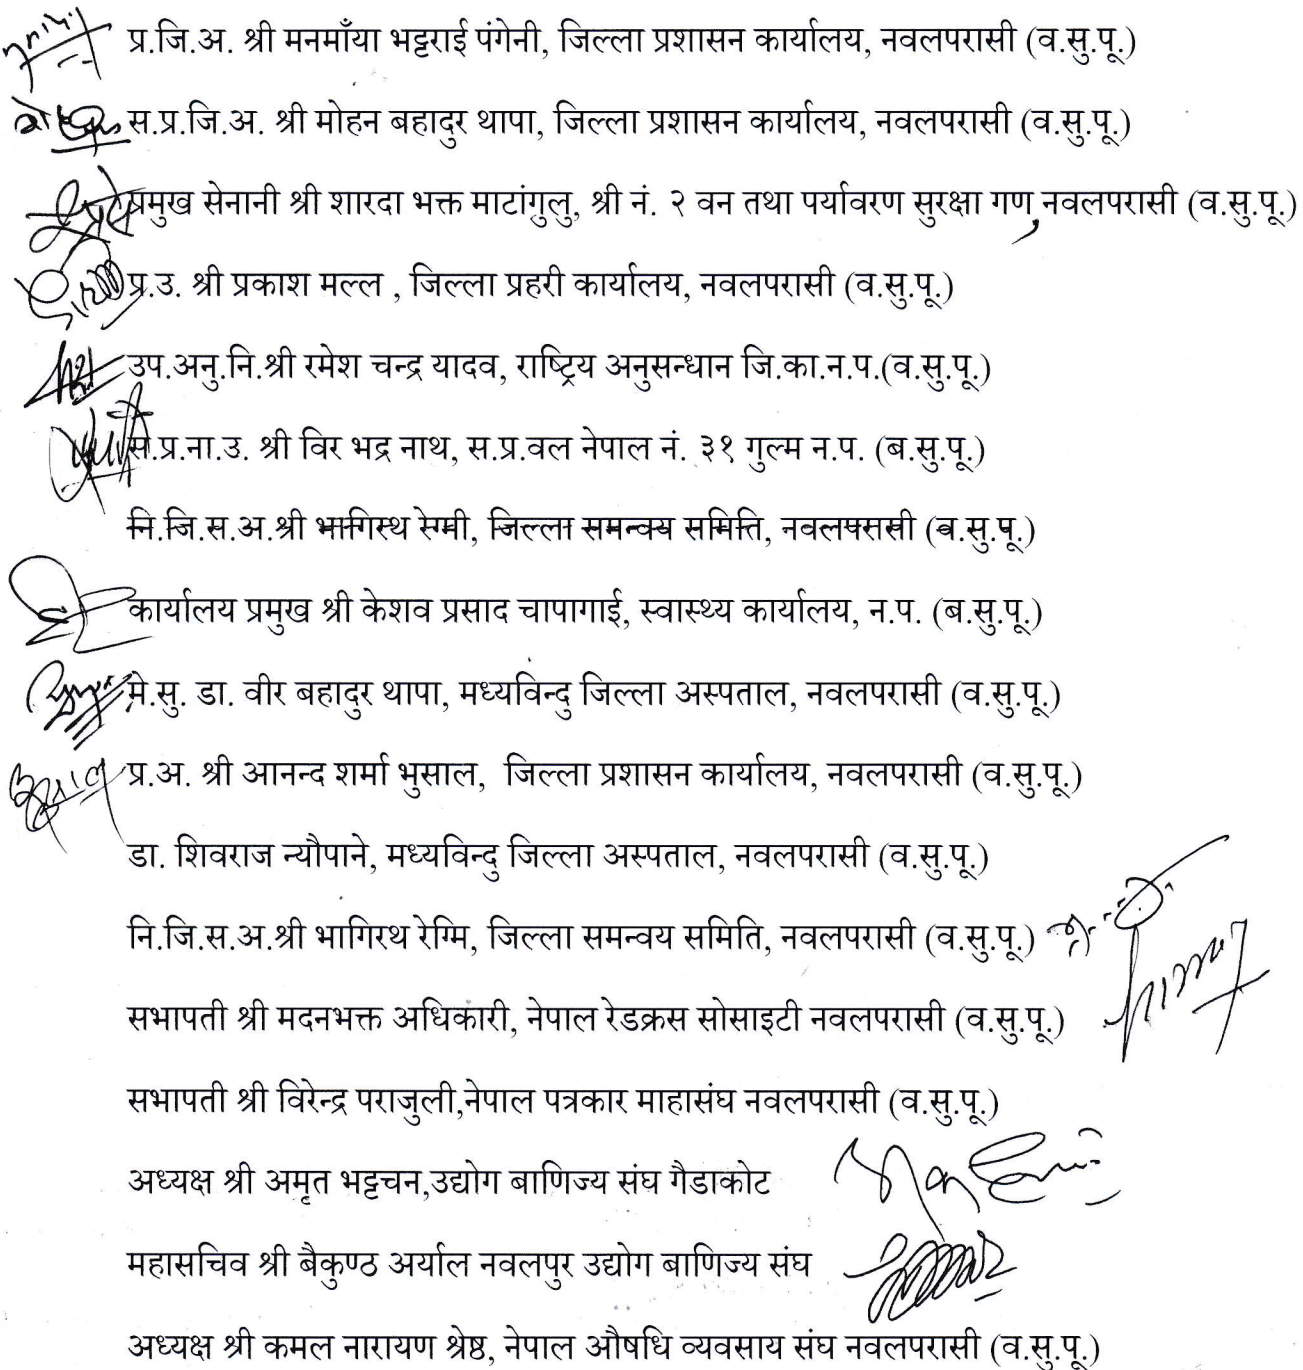 प्र.जि.अ. श्री मनमाँया भट्टराई पंगेनी, जिल्ला प्रशासन कार्यालय, नवलपरासी (व.सु.पू.)
स.प्र.जि.अ. श्री मोहन बहादुर थापा, जिल्ला प्रशासन कार्यालय, नवलपरासी (व.सु.पू.)
प्रमुख सेनानी श्री शारदा भक्त माटांगुलु, श्री नं. २ वन तथा पर्यावरण सुरक्षा गण, नवलपरासी (व.सु.पू.)
प्र.उ. श्री प्रकाश मल्ल , जिल्ला प्रहरी कार्यालय, नवलपरासी (व.सु.पू.)
उप.अनु.नि.श्री रमेश चन्द्र यादव, राष्ट्रिय अनुसन्धान जि.का.न.प.(व.सु.पू.)
स.प्र.ना.उ. श्री विर भद्र नाथ, स.प्र.वल नेपाल नं. ३१ गुल्म न.प. (ब.सु.पू.)
नि.जि.स.अ.श्री भागिरथ रेग्मी, जिल्ला समन्वय समिति, नवलपरासी (व.सु.पू.)
कार्यालय प्रमुख श्री केशव प्रसाद चापागाई, स्वास्थ्य कार्यालय, न.प. (ब.सु.पू.)
मे.सु. डा. वीर बहादुर थापा, मध्यविन्दु जिल्ला अस्पताल, नवलपरासी (व.सु.पू.)
प्र.अ. श्री आनन्द शर्मा भुसाल, जिल्ला प्रशासन कार्यालय, नवलपरासी (व.सु.पू.)
डा. शिवराज न्यौपाने, मध्यविन्दु जिल्ला अस्पताल, नवलपरासी (व.सु.पू.)
नि.जि.स.अ.श्री भागिरथ रेग्मि, जिल्ला समन्वय समिति, नवलपरासी (व.सु.पू.)
सभापती श्री मदनभक्त अधिकारी, नेपाल रेडक्रस सोसाइटी नवलपरासी (व.सु.पू.)
सभापती श्री विरेन्द्र पराजुली,नेपाल पत्रकार माहासंघ नवलपरासी (व.सु.पू.)
अध्यक्ष श्री अमृत भट्टचन,उद्योग बाणिज्य संघ गैडाकोट
महासचिव श्री बैकुण्ठ अर्याल नवलपुर उद्योग बाणिज्य संघ
अध्यक्ष श्री कमल नारायण श्रेष्ठ, नेपाल औषधि व्यवसाय संघ नवलपरासी (व.सु.पू.)